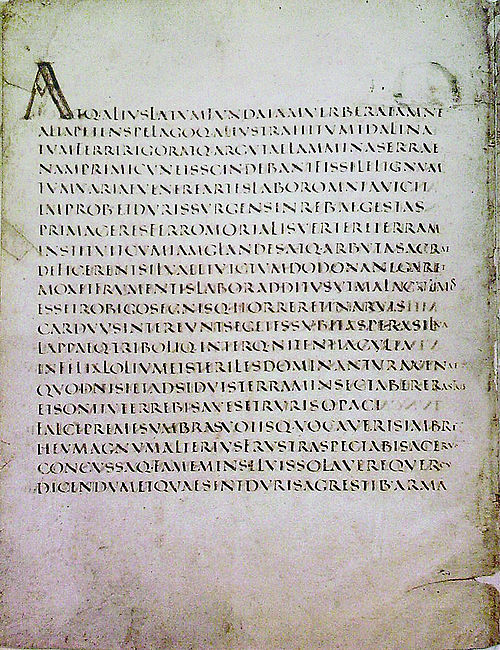 ATQ·ALIVSLATVMFVNDAIAMVERBERATAMNE
ALTAPETENSPELAGOQ·ALIVSTRAHITVMIDALINA
TVMFERRIRIGORATQ·ARGVTAELAMMINASERRAE
NAMPRIMICVNEISSCINDEBANTFISSILELIGNVM
TVMVARIAEVENEREARTESLABOROMNIAVICIT
IMPROBETDVRISSVRGENSINREBVSEGESTAS
PRIMACERESFERROMORTALISVERTERETERRAM
INSTITVITCVMIAMGLANDESATQ·ARBVTASACRAE
DEFICERENTSILVAEETVICTVMDODONANEGARET
MOXETFRVMENTISLABORADDITVSVTMALACVLMOS
ESSETROBIGOSEGNISQ·HORRERETINARVIS
CARDVVSINTEREVNTSEGETESSVBITASPERASILVA
LAPPAEQ·TRIBOLIQ·INTERQ·NITENTIACVLTA
INFELIXLOLIVMETSTERILESDOMINANTVRAVENAE
QVODNISIETADSIDVISTERRAMINSECTABERERASTRIS
ETSONITVTERREBISAVESETRVRISOPACI
FALCIPREMESVMBRASVOTISQ·VOCAVERISIMBRE
HEVMAGNVMALTERIVSFRVSTRASPECTABISACERVOM
CONCVSSAQ·FAMEMINSILVISSOLAVEREQVERCV
DICENDVMETQVAESINTDVRISAGRESTIBARMA